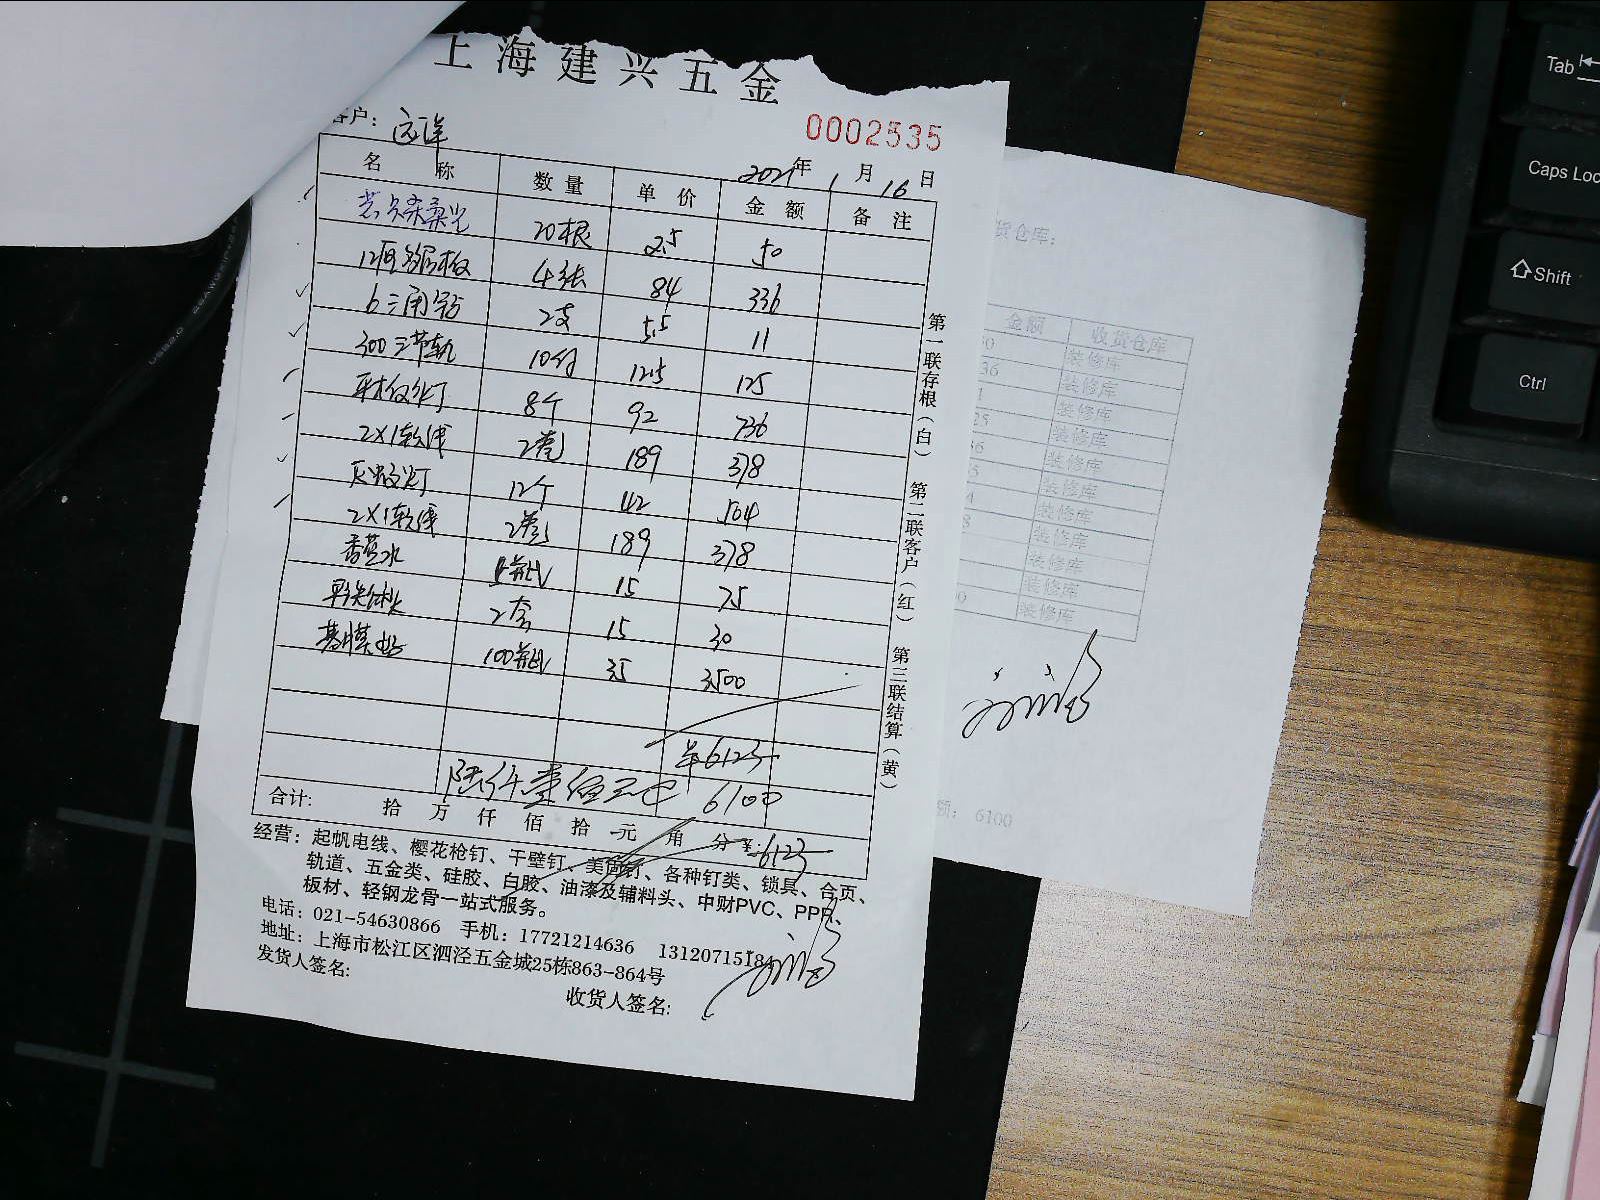 上海建兴五金
客户: 远洋
0002535
2021年1月16日
名称 数量 单价 金额 备注
20根 2.5 50
12厘 4张 84 336
6三角钻 2支 5.5 11
300三节轨 10付 12.5 125
平板灯 8个 92 736
2X1软线 2卷 189 378
灯 12个 42 504
2X1软线 2卷 189 378
香蕉水 瓶 15 75
2套 15 30
基膜 100瓶 35 3500
6123
陆仟壹佰元 6100
合计: 拾 万 仟 佰 拾 元 角 分 ¥: 6123
经营: 起帆电线、樱花枪钉、干壁钉、美固钉、各种钉类、锁具、合页、
轨道、五金类、硅胶、白胶、油漆及辅料头、中财PVC、PPR、
板材、轻钢龙骨一站式服务。
电话: 021-54630866 手机: 17721214636 13120715184
地址: 上海市松江区泗泾五金城25栋863-864号
发货人签名:
收货人签名:
第一联存根(白) 第二联客户(红) 第三联结算(黄)
货仓库:
金额 收货仓库
0 装修库
36 装修库
1 装修库
25 装修库
36 装修库
装修库
4 装修库
8 装修库
装修库
装修库
0 装修库
额: 6100
Tab
Caps Loc
Shift
Ctrl